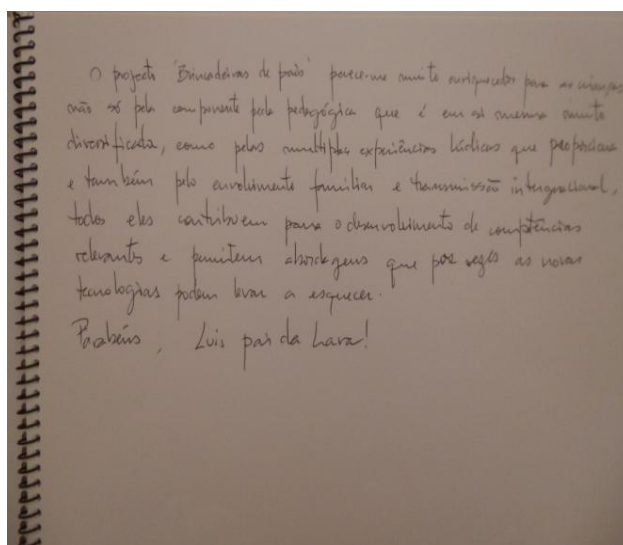 O projecto 'Brincadeiras de pais' parece-me muito enriquecedor para as crianças
não só pela componente pela pedagógica que é em si mesma muito
diversificada, como pelas multiplas experiências lúdicas que proporciona
e também pelo envolvimento familiar e transmissão intergeracional,
todos eles contribuem para o desenvolvimento de competências
relevantes e permitem abordagens que por vezes as novas
tecnologias podem levar a esquecer.
Parabéns, Luis pai da Lara!